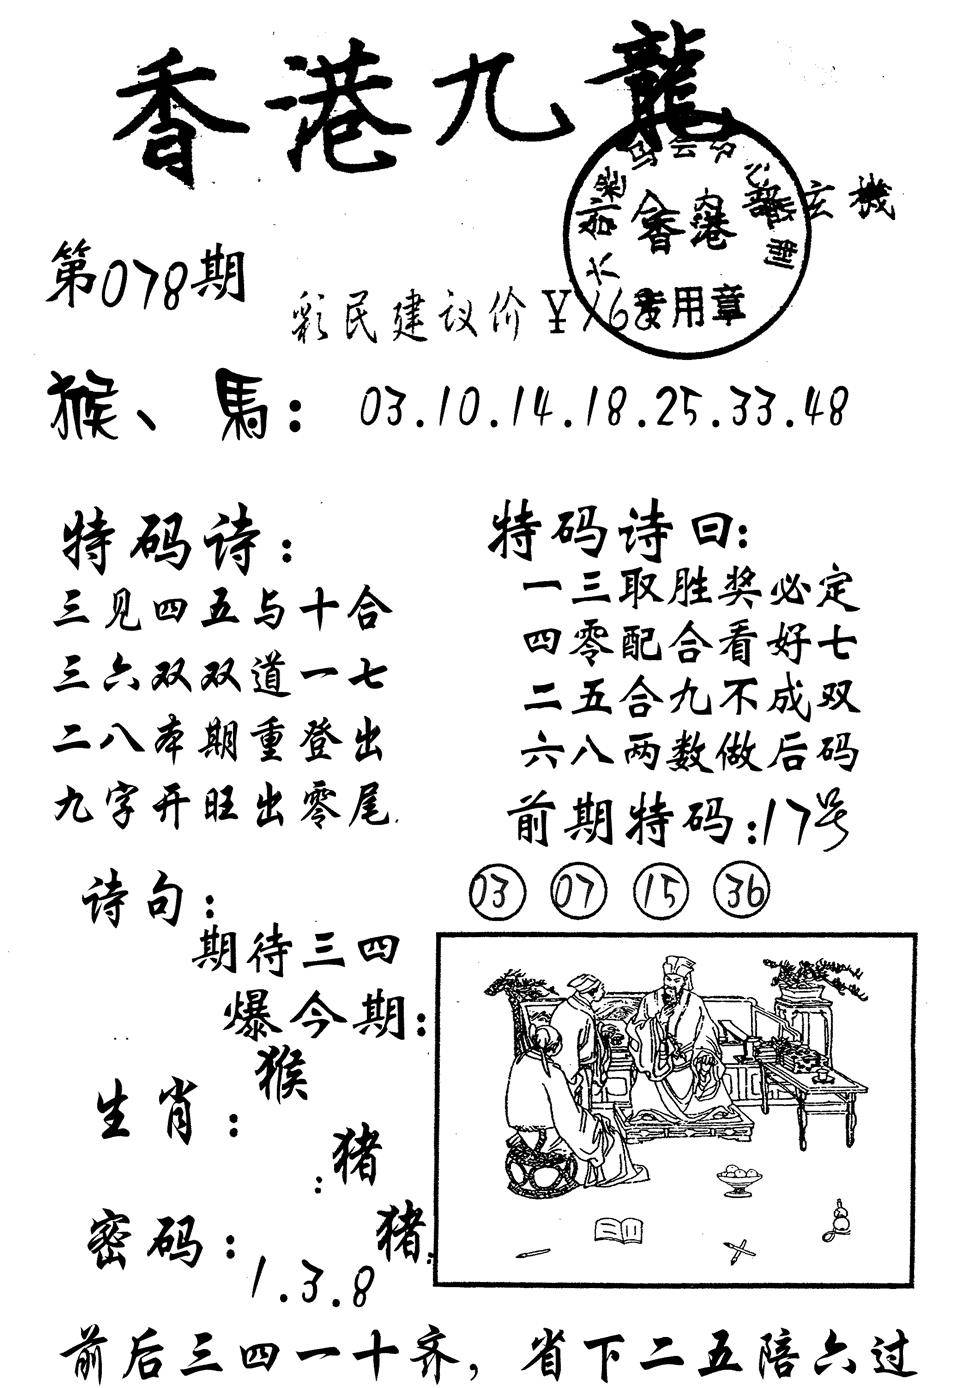 香港九龍
玄機
香港
专用章
第078期
彩民建议价￥168
猴、馬：03.10.14.18.25.33.48
特码诗：
三见四五与十合
三六双双道一七
二八本期重登出
九字开旺出零尾
特码诗曰：
一三取胜奖必定
四零配合看好七
二五合九不成双
六八两数做后码
前期特码：17号
03 07 15 36
诗句：
期待三四
爆今期：
猴
生肖：
猪
密码：
猪
1.3.8
前后三四一十齐，省下二五陪六过